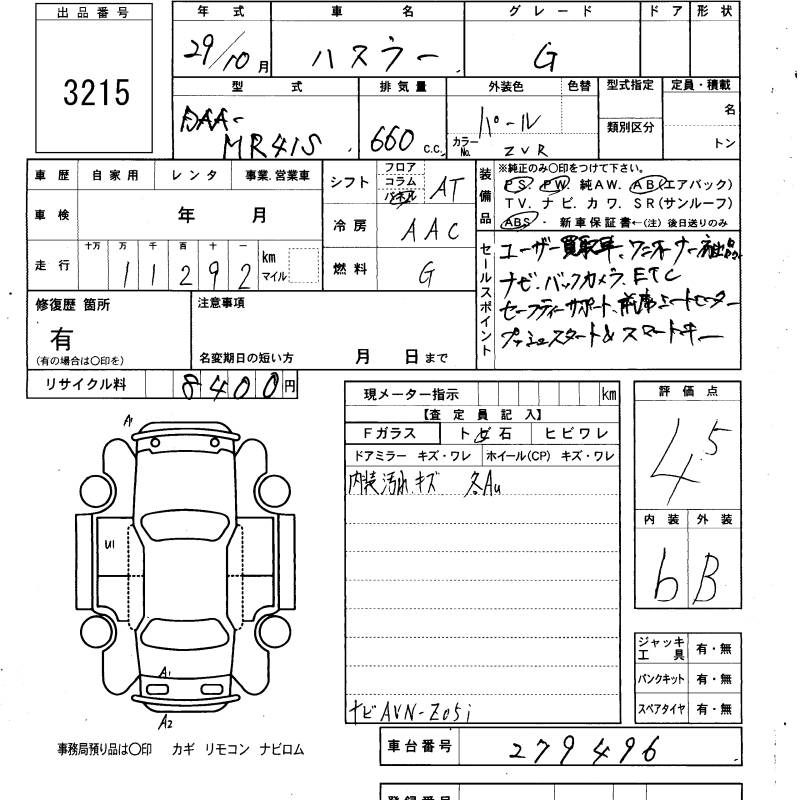 出品番号
3215
年式 車名 グレード ドア 形状
29/10月 ハスラー G
型式 排気量 外装色 色替 型式指定 定員・積載
DAA-MR41S 660 c.c. パール カラーNo. ZVR 類別区分 名 トン
車歴 自家用 レンタ 事業.営業車
シフト フロア コラム パネル AT
装備品
※純正のみ○印をつけて下さい。
PS. PW. 純AW. AB(エアバック)
TV. ナビ. カワ. SR(サンルーフ)
ABS ・ 新車保証書←(注) 後日送りのみ
車検 年 月
冷房 AAC
走行 十万 万 千 百 十 一
11292 km マイル
燃料 G
セールスポイント
ユーザー買取車、ワンオーナー
ナビ.バックカメラ.ETC
セーフティーサポート、シートヒーター
プッシュスタート&スマートキー
修復歴 箇所
有
(有の場合は○印を)
注意事項
名変期日の短い方 月 日まで
リサイクル料 8400円
現メーター指示 km
【査定員記入】
Fガラス トビ石 ヒビワレ
ドアミラー キズ・ワレ ホイール(CP) キズ・ワレ
内装汚れ.キズ 各AU
ナビ AVN-Z05i
評価点
4.5
内装 外装
b B
A1
U1
A1
A2
ジャッキ工具 有・無
パンクキット 有・無
スペアタイヤ 有・無
事務局預り品は○印 カギ リモコン ナビロム
車台番号 279496
登録番号